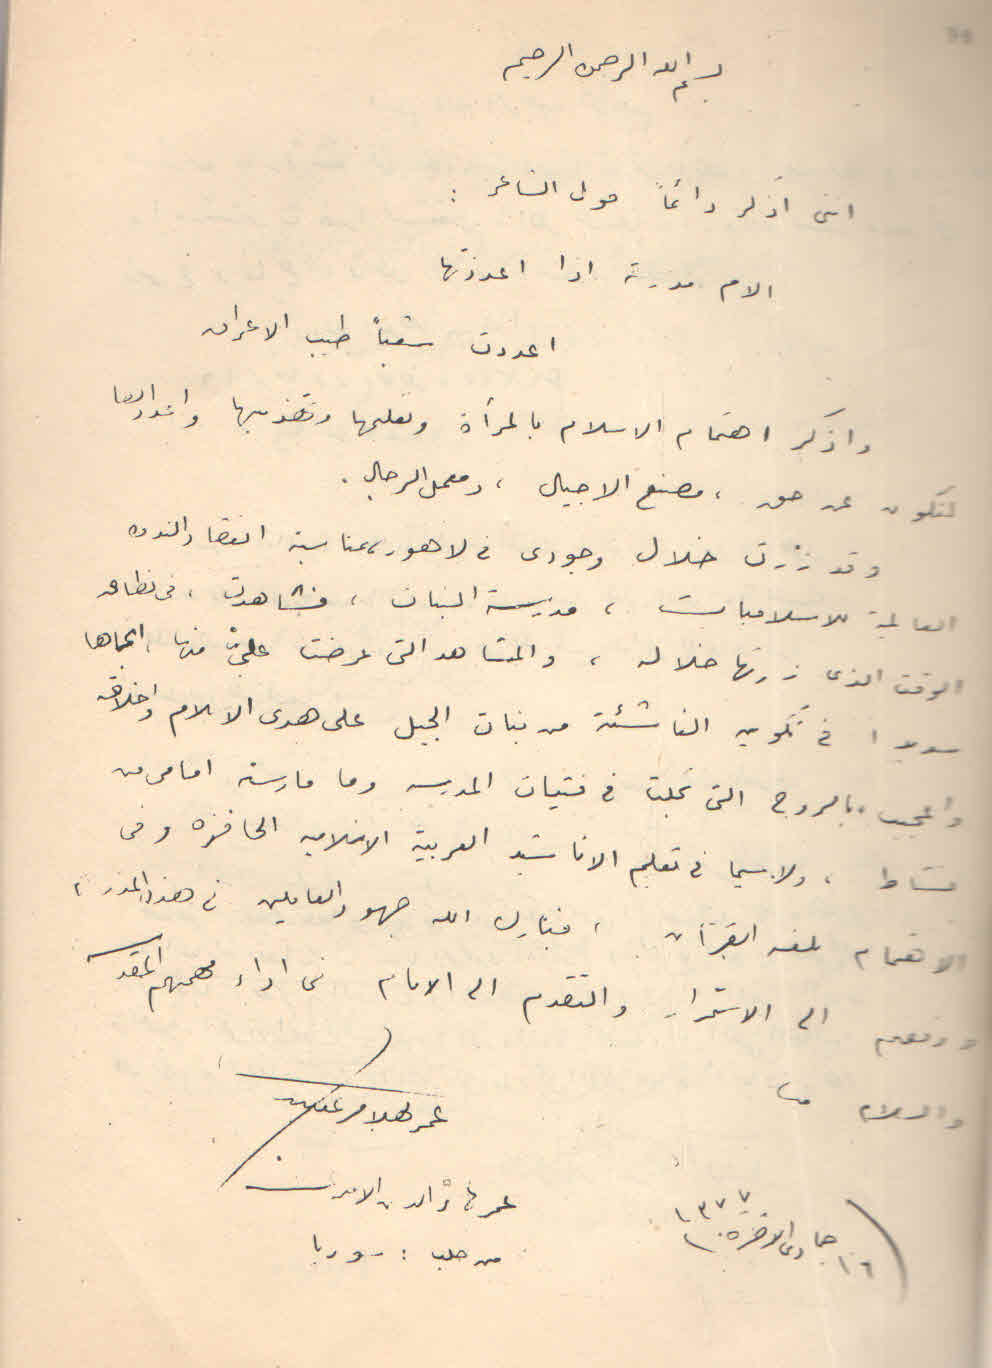 بسم الله الرحمن الرحيم
انني أذكر دائماً قول الشاعر :
الام مدرسة اذا اعددتها
اعددت شعباً طيب الاعراق
واذكر اهتمام الاسلام بالمرأة وتعليمها وتهذيبها واعدادها
لتكون عن حق ، مصنع الاجيال ، ومعمل الرجال .
وقد زرت خلال وجودي في لاهور، بمناسبة انعقاد الندوة
العالمية للاسلاميات ، مدرسة البنات ، فشاهدت ، في نطاق
الوقت الذي زرتها خلاله ، والمشاهد التي عرضت عليّ منها ، اتجاها
سديدا في تكوين الناشئة من بنات الجيل على هدى الاسلام واخلاقه
واعجبت بالروح التي تجلت في فتيات المدرسة وما مارسته امامي من
نشاط ، ولا سيما في تعليم الاناشيد العربية الاسلامية الحافزة وفي
الاهتمام بلغة القرآن ، فبارك الله جهود العاملين في هذه المدرسة ،
ووفقهم الى الاستمرار والتقدم الى الامام في اداء مهمتهم المقدسة
والسلام
عمر بهاء الدين الاميري
من حلب : سوريا
١٦ جمادى الآخرة ١٣٧٧